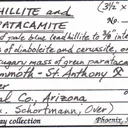 HILLITE and (3½ x
PATACAMITE
d pale blue leadhillite to ⅜" inte
of diaboleite and cerussite, on
sugary mass of green paratacam
mmoth - St. Anthony
er
al Co., Arizona
Schortmann, Over)
ay collection Phoenix,